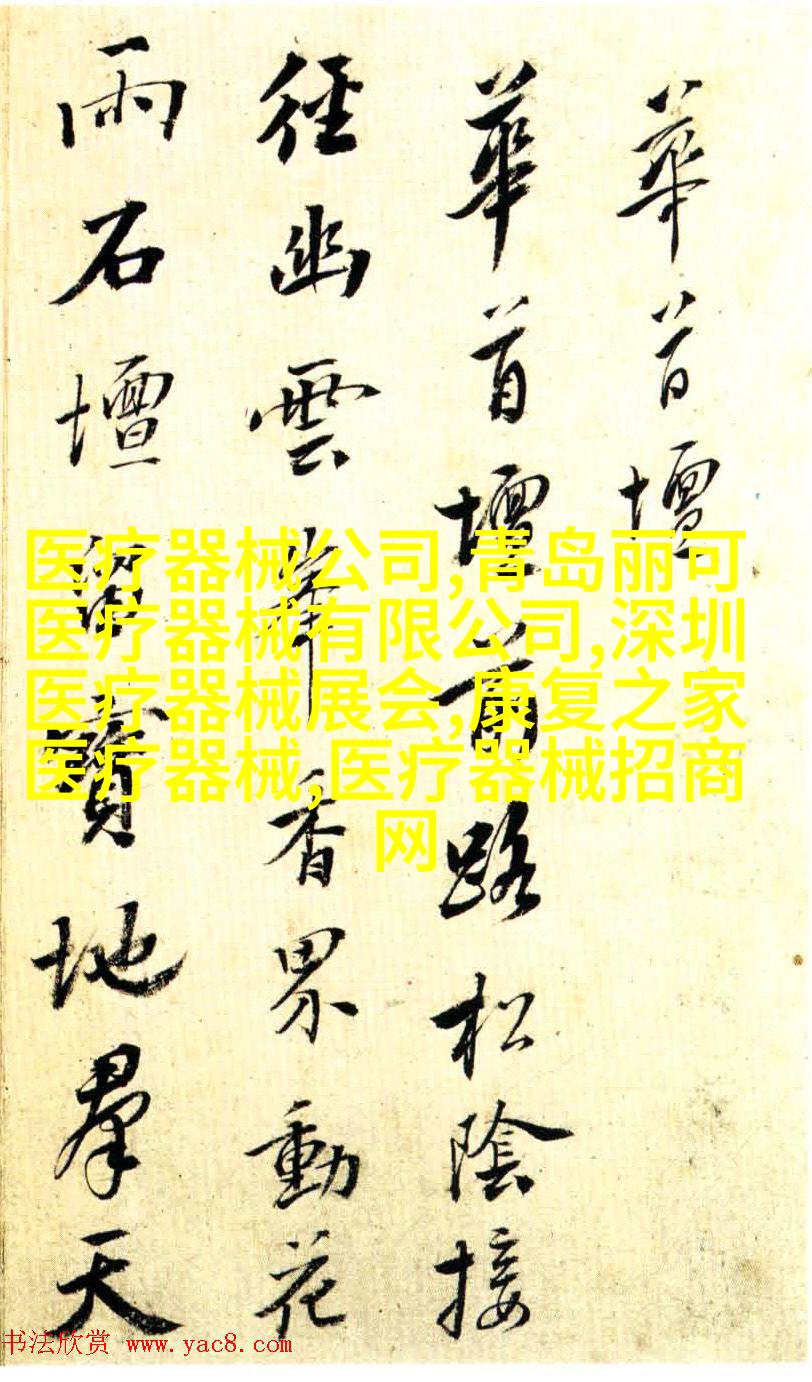 華首壇
華首壇前路松陰接
徑幽雲峯香界動花
雨石壇留寶地羣天
医疗器械公司,青岛丽可
医疗器械有限公司,深圳
医疗器械展会,康复之家
医疗器械,医疗器械招商
网
书法欣赏 www.yac8.com